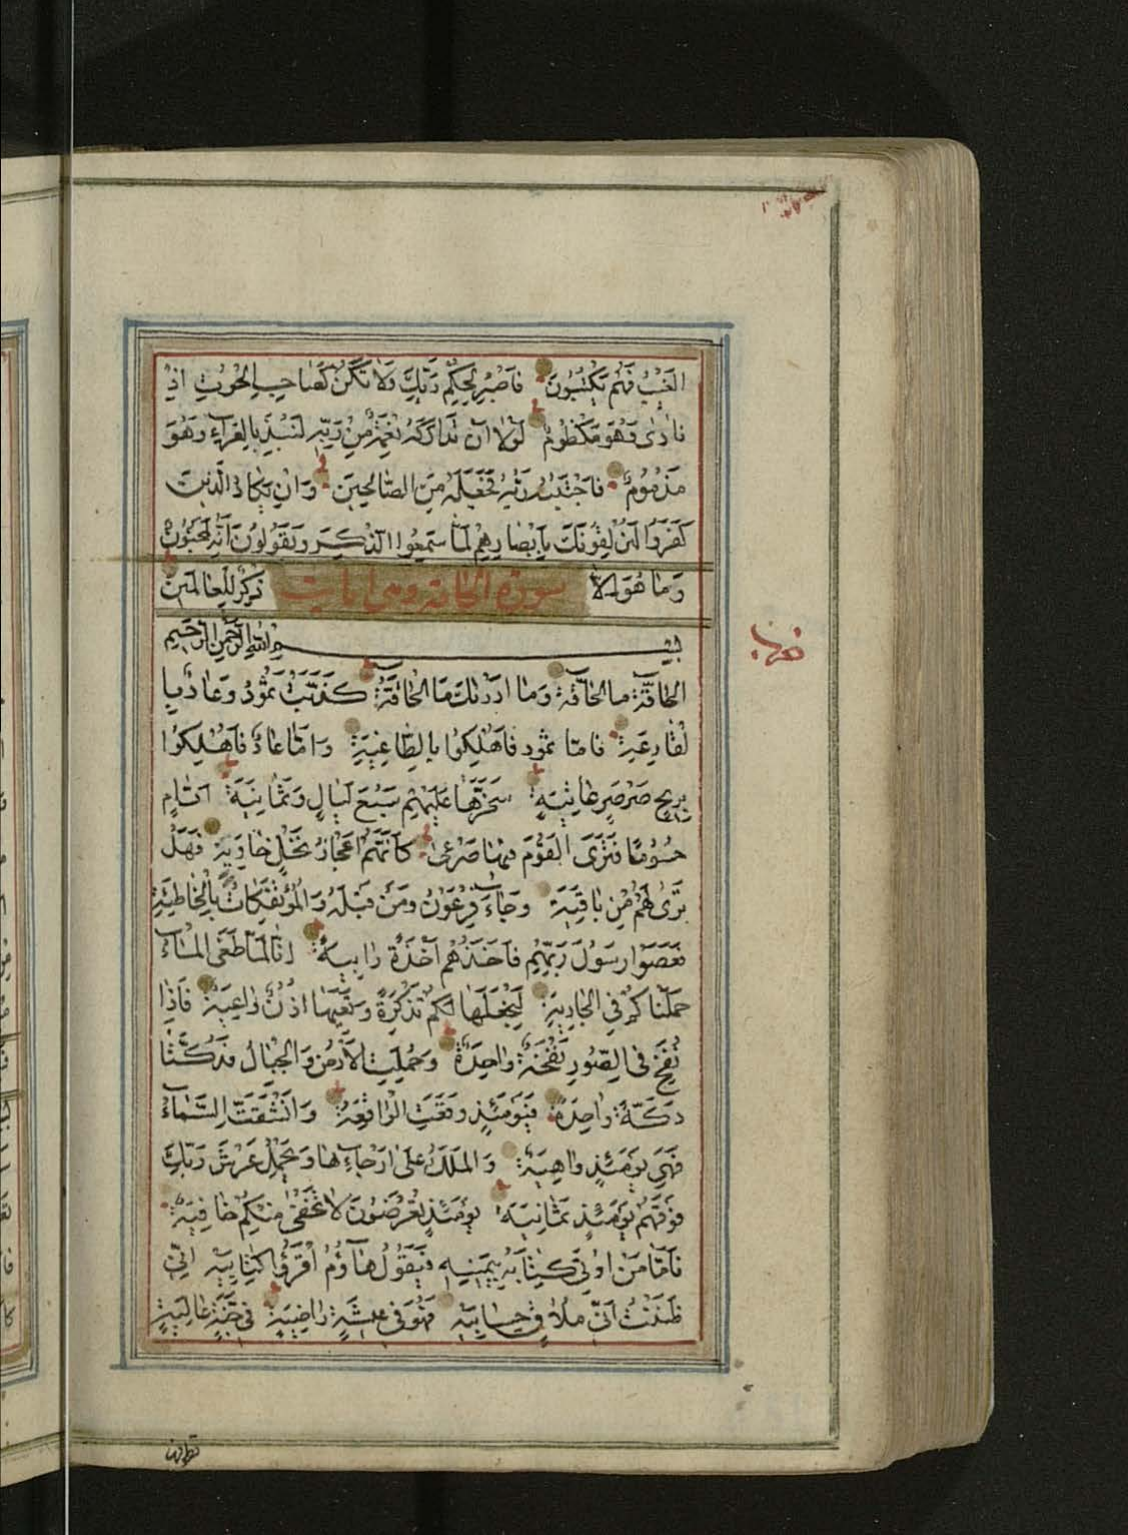 الغَيْبُ فَهُمْ يَكْتُبُونَ فَاصْبِرْ لِحُكْمِ رَبِّكَ وَلَا تَكُنْ كَصَاحِبِ الْحُوتِ اِذْ
نَادٰى وَهُوَ مَكْظُومٌ لَوْلَا اَنْ تَدَارَكَهُ نِعْمَةٌ مِنْ رَبِّهِ لَنُبِذَ بِالْعَرَاءِ وَهُوَ
مَذْمُومٌ فَاجْتَبٰهُ رَبُّهُ فَجَعَلَهُ مِنَ الصَّالِحِينَ وَاِنْ يَكَادُ الَّذِينَ
كَفَرُوا لَيُزْلِقُونَكَ بِاَبْصَارِهِمْ لَمَّا سَمِعُوا الذِّكْرَ وَيَقُولُونَ اِنَّهُ لَمَجْنُونٌ
وَمَا هُوَ اِلَّا سورة الحاقة وهى ايات ذِكْرٌ لِلْعَالَمِينَ
بِسْمِ اللّٰهِ الرَّحْمٰنِ الرَّحِيمِ
الحَاقَّةُ مَا الْحَاقَّةُ وَمَا اَدْرٰىكَ مَا الْحَاقَّةُ كَذَّبَتْ ثَمُودُ وَعَادٌ بِا
لْقَارِعَةِ فَاَمَّا ثَمُودُ فَاُهْلِكُوا بِالطَّاغِيَةِ وَاَمَّا عَادٌ فَاُهْلِكُوا
بِرِيحٍ صَرْصَرٍ عَاتِيَةٍ سَخَّرَهَا عَلَيْهِمْ سَبْعَ لَيَالٍ وَثَمَانِيَةَ اَيَّامٍ
حُسُومًا فَتَرَى الْقَوْمَ فِيهَا صَرْعٰى كَاَنَّهُمْ اَعْجَازُ نَخْلٍ خَاوِيَةٍ فَهَلْ
تَرٰى لَهُمْ مِنْ بَاقِيَةٍ وَجَاءَ فِرْعَوْنُ وَمَنْ قَبْلَهُ وَالْمُؤْتَفِكَاتُ بِالْخَاطِئَةِ
فَعَصَوْا رَسُولَ رَبِّهِمْ فَاَخَذَهُمْ اَخْذَةً رَابِيَةً اِنَّا لَمَّا طَغَى الْمَاءُ
حَمَلْنَاكُمْ فِي الْجَارِيَةِ لِنَجْعَلَهَا لَكُمْ تَذْكِرَةً وَتَعِيَهَا اُذُنٌ وَاعِيَةٌ فَاِذَا
نُفِخَ فِي الصُّورِ نَفْخَةٌ وَاحِدَةٌ وَحُمِلَتِ الْاَرْضُ وَالْجِبَالُ فَدُكَّتَا
دَكَّةً وَاحِدَةً فَيَوْمَئِذٍ وَقَعَتِ الْوَاقِعَةُ وَانْشَقَّتِ السَّمَاءُ
فَهِيَ يَوْمَئِذٍ وَاهِيَةٌ وَالْمَلَكُ عَلٰى اَرْجَاءِهَا وَيَحْمِلُ عَرْشَ رَبِّكَ
فَوْقَهُمْ يَوْمَئِذٍ ثَمَانِيَةٌ يَوْمَئِذٍ تُعْرَضُونَ لَا تَخْفٰى مِنْكُمْ خَافِيَةٌ
فَاَمَّا مَنْ اُوتِيَ كِتَابَهُ بِيَمِينِهِ فَيَقُولُ هَاؤُمُ اقْرَؤُا كِتَابِيَهْ اِنِّي
ظَنَنْتُ اَنِّي مُلَاقٍ حِسَابِيَهْ فَهُوَ فِي عِيشَةٍ رَاضِيَةٍ فِي جَنَّةٍ عَالِيَةٍ